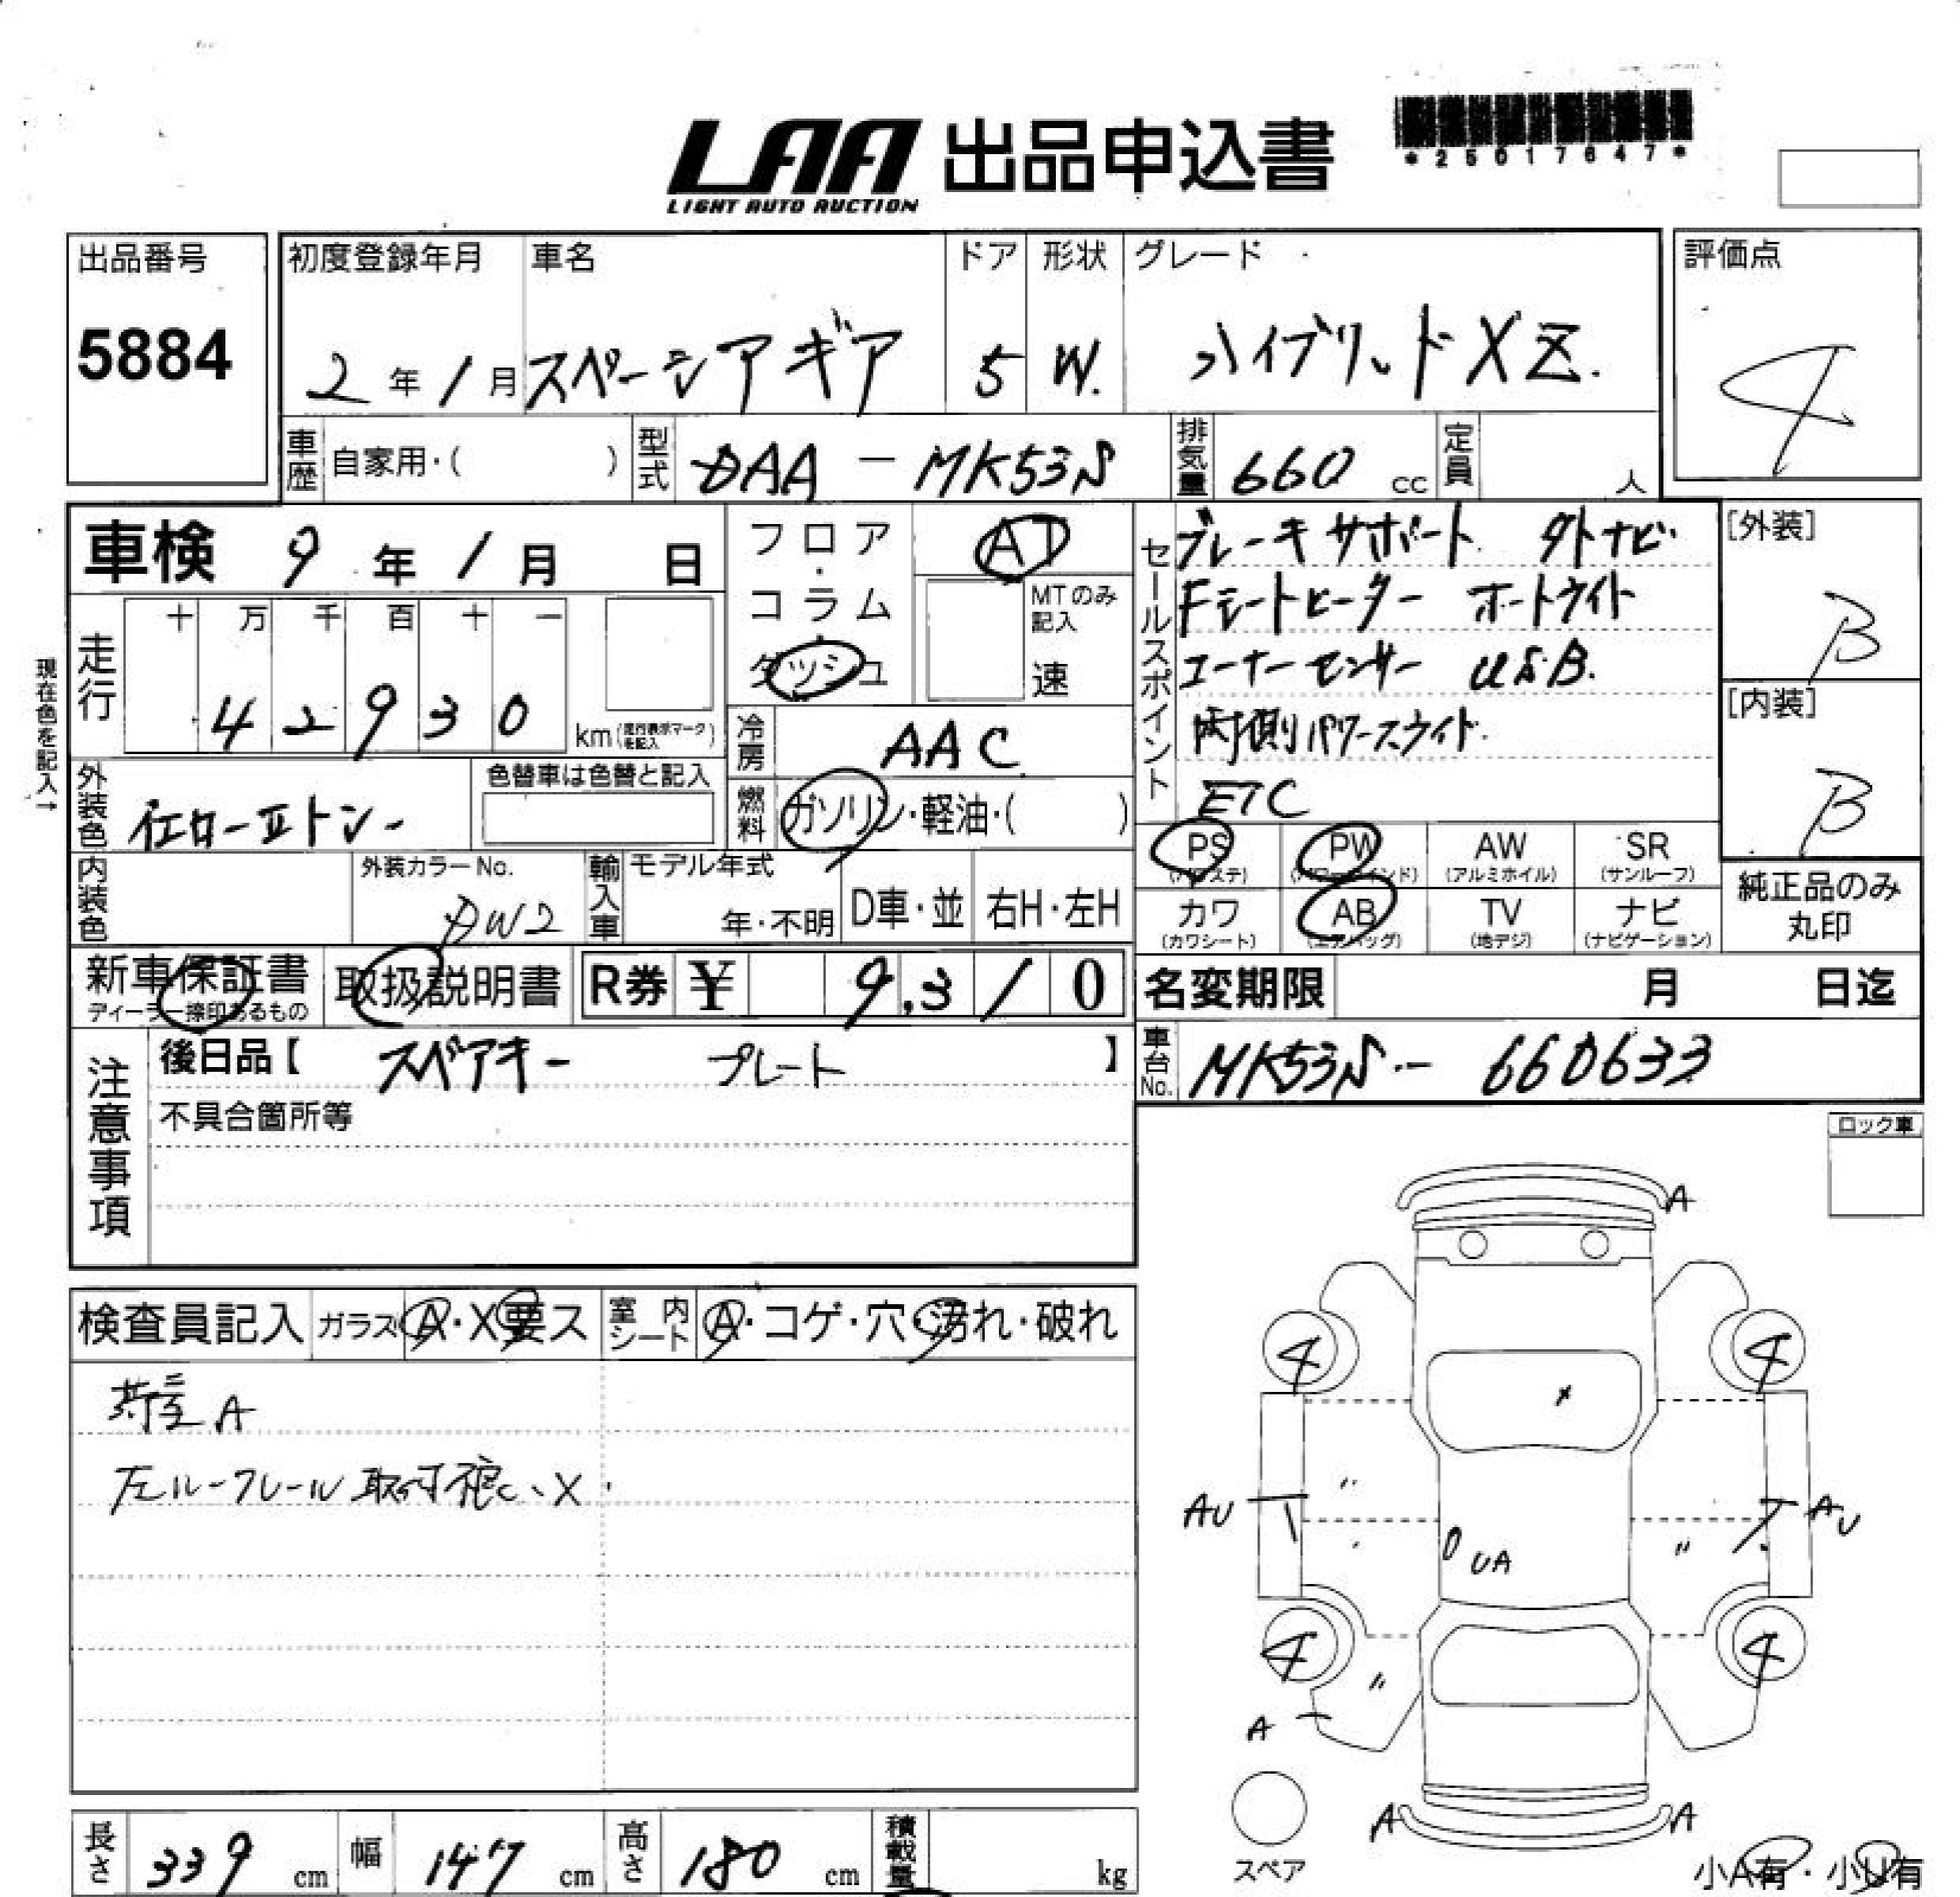 LAA 出品申込書
LIGHT AUTO AUCTION
*25017647*
出品番号
5884
初度登録年月 車名 ドア 形状 グレード
2年1月 スペーシアギア 5 W. ハイブリッドXZ.
評価点
4
車歴 自家用・( ) 型式 DAA-MK53S 排気量 660 cc 定員 人
車検 9年1月 日
フロア・コラム・ダッシュ
AT
MTのみ記入
速
セールスポイント
ブレーキサポート 外ナビ
Fシートヒーター オートライト
コーナーセンサー USB.
両側パワースライド.
ETC
[外装]
B
[内装]
B
現在色を記入→
走行
十 万 千 百 十 一
4 2 9 3 0 km(走行表示マークを記入)
冷房 AAC
外装色
色替車は色替と記入
燃料 ガソリン・軽油・( )
内装色 外装カラーNo. DW2
輸入車 モデル年式 年・不明 D車・並 右H・左H
PS (パワステ) PW (パワーウインド) AW (アルミホイル) SR (サンルーフ)
カワ (カワシート) AB (エアバッグ) TV (地デジ) ナビ (ナビゲーション)
純正品のみ丸印
新車保証書 ディーラー捺印あるもの 取扱説明書 R券 ¥ 9,310
名変期限 月 日迄
注意事項
後日品【 スペアキー プレート 】
車台No. MK53S-660633
不具合箇所等
ロック車
検査員記入 ガラス A・X要ス 室内シート A・コゲ・穴・汚れ・破れ
荷室A
左ルーフレール取付 X
A
4 4
AU AU
UA
4 4
A
A A
スペア
小A有・小U有
長さ 339 cm 幅 147 cm 高さ 180 cm 積載量 kg